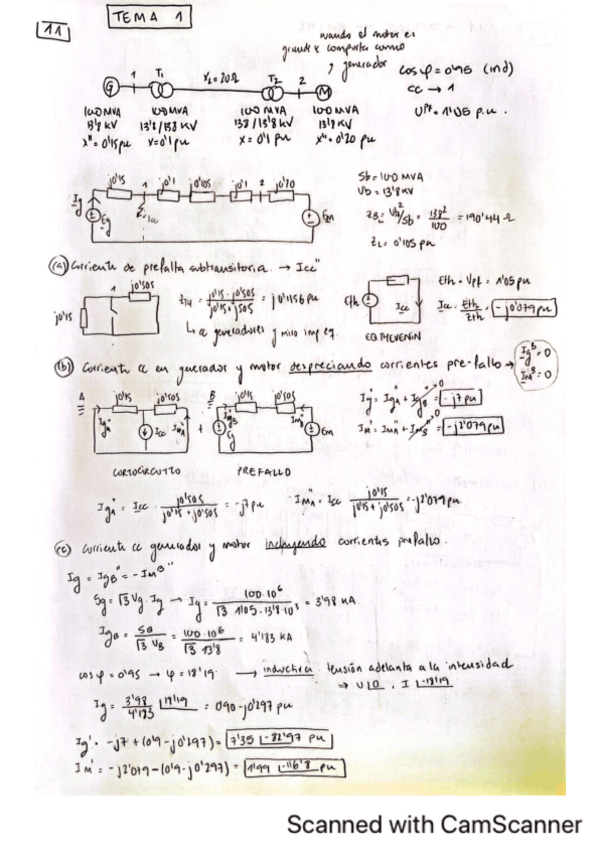 11
TEMA 1
cuando el motor es
grande se comporta como
generador
cos φ = 0'95 (ind)
cc → 1
U^pf = 1'05 p.u.
G 1 T1 XL = 20Ω T2 2 M
100 MVA 100 MVA 100 MVA 100 MVA
13'8 kV 13'8/138 kV 138/13'8 kV 13'8 kV
x" = 0'15 pu x = 0'1 pu x = 0'1 pu x" = 0'20 pu
j0'15 1 j0'1 j0'105 j0'1 2 j0'20
Ig Eg Icc Em
Sb = 100 MVA
Ub = 13'8 kV
ZB = Ub²/Sb = 138²/100 = 190'44 Ω
ZL = 0'105 pu
(a) Corriente de prefalta subtransitoria. → Icc"
j0'15 1 j0'505
ZTH = j0'15 · j0'505 / j0'15 + j0'505 = j0'1156 pu
↳ cc generadores y miro imp eq.
Eth Icc
EQ THEVENIN
Eth = Vpf = 1'05 pu
Icc = Eth/Zth = -j0'079 pu
(b) Corriente cc en generador y motor despreciando corrientes pre-fallo → Ig^B = 0
Im^B = 0
A j0'15 j0'505 B j0'15 j0'505
IgA" Icc ImA" + Ig^B Eg Im^B Em
CORTOCIRCUITO PREFALLO
Ig" = IgA" + IgB" = -j7 pu
Im" = ImA" + ImB" = -j2'079 pu
IgA" = Icc · j0'505 / j0'15 + j0'505 = -j7 pu ImA" = Icc j0'15 / j0'15 + j0'505 = -j2'079 pu
(c) Corriente cc generador y motor incluyendo corrientes prefallo.
Ig = IgB" = -ImB"
Sg = √3 Vg · Ig → Ig = 100·10⁶ / √3 1'105 · 13'8·10³ = 3'98 kA
IgB = SB / √3 VB = 100·10⁶ / √3 13'8 = 4'183 kA
cos φ = 0'95 → φ = 18'19° → inductiva tensión adelanta a la intensidad
→ U|0 , I |-18'19
Ig = 3'98/4'183 |18'19 = 0'90 - j0'297 pu
Ig' = -j7 + (0'9 - j0'297) = 7'35 |-82'97 pu
Im' = -j2'079 - (0'9 - j0'297) = 1'99 |-116'8 pu
Scanned with CamScanner